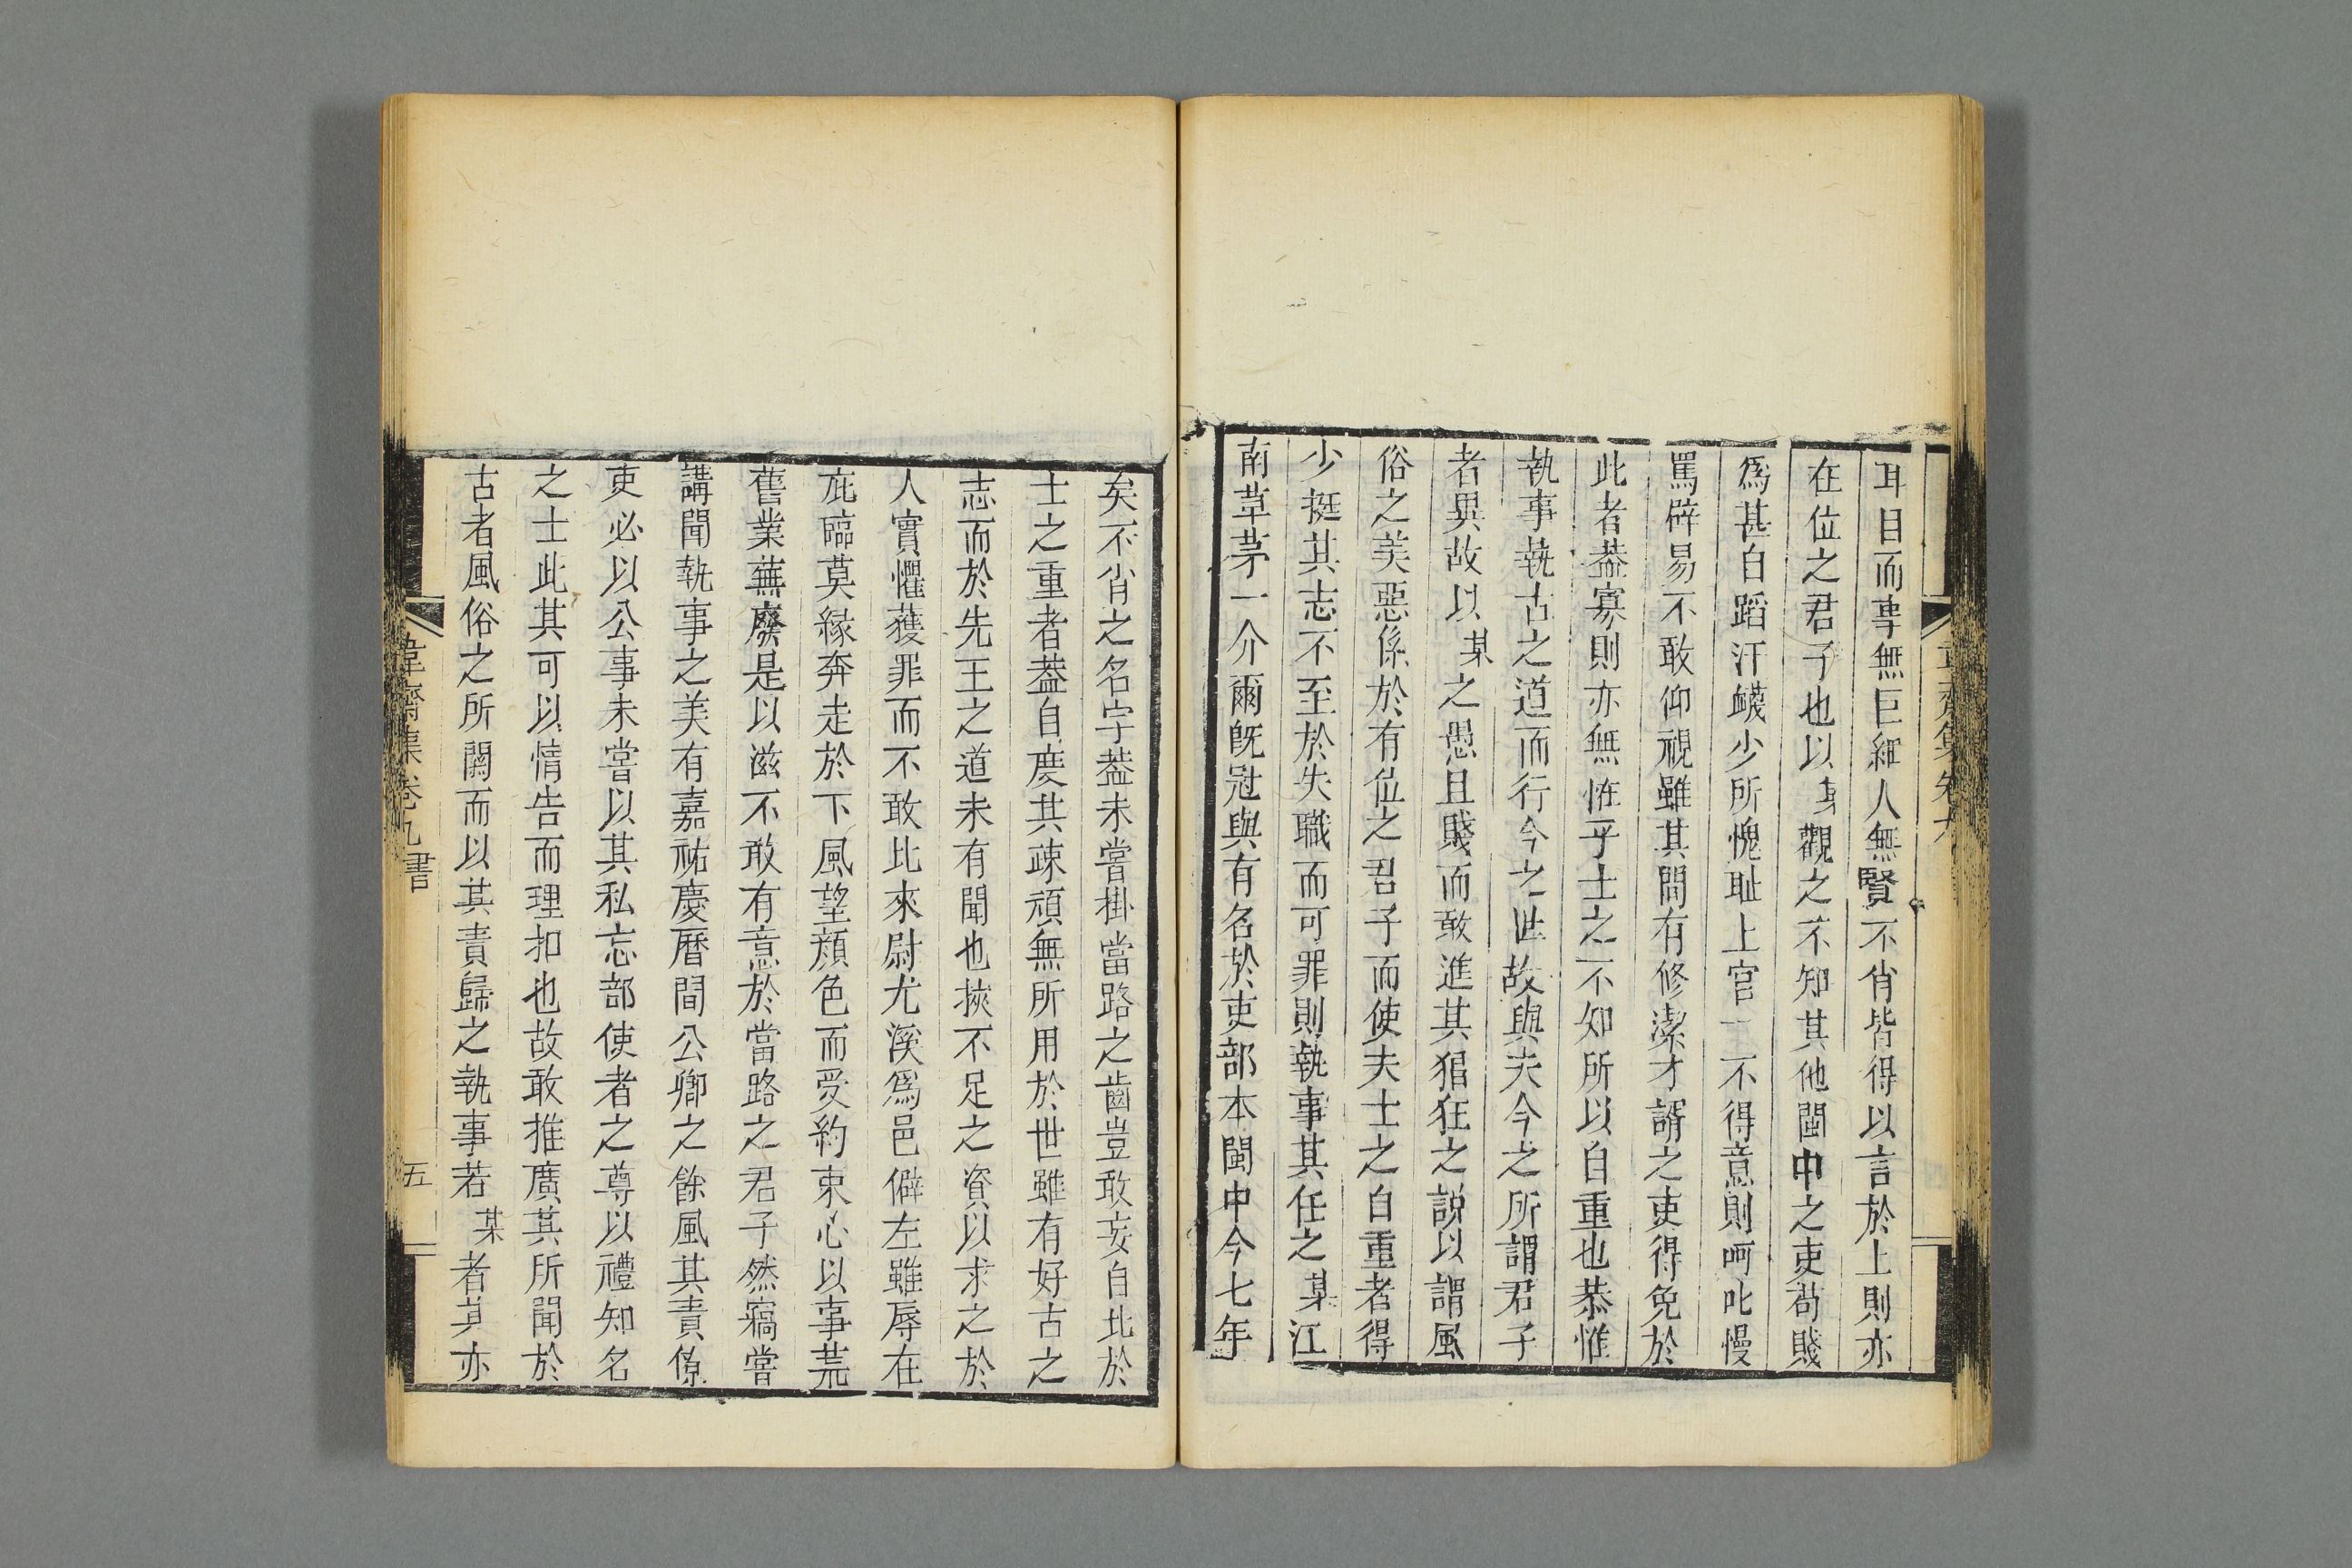 耳目而專無巨細人無賢不肖皆得以言於上則亦
在位之君子也以觀之不知其他閩中之吏苟賤
爲甚自蹈汗衊少所愧耻上官一不得意則呵叱慢
罵辟易不敢仰視雖其間有修潔才諝之吏得免於
此者葢寡則亦無恠乎士之不知所以自重也恭惟
執事執古之道而行今之世故與夫今之所謂君子
者異故以某之愚且賤而敢進其狷狂之說以謂風
俗之美惡係於有位之君子而使夫士之自重者得
少挺其志不至於失職而可罪則執事其任之某江
南草茅一介爾旣冠與有名於吏部本閩中今七年
矣不肖之名字葢未嘗掛當路之齒豈敢妄自比於
士之重者葢自度其疎頑無所用於世雖有好古之
志而於先王之道未有聞也挾不足之資以求之於
人實懼獲罪而不敢比來尉尤溪爲邑僻左雖辱在
庇臨莫緣奔走於下風望顏色而受約束心以事荒
舊業蕪廢是以滋不敢有意於當路之君子然竊嘗
講聞執事之美有嘉祐慶曆間公卿之餘風其責僚
吏必以公事未嘗以其私忘部使者之尊以禮知名
之士此其可以情告而理扣也故敢推廣其所聞於
古者風俗之所關而以其責歸之執事若某者其亦
韋齋集卷九 書
五